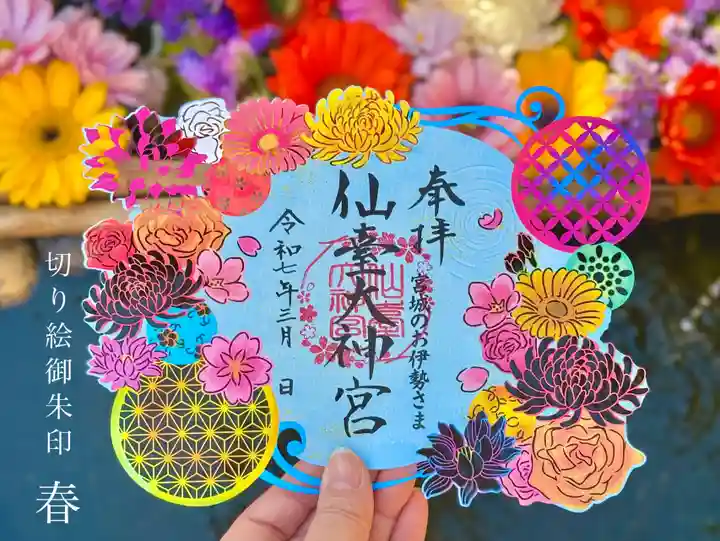 奉拝
宮城のお伊勢さま
仙臺大神宮
令和七年三月 日
切り絵御朱印
春